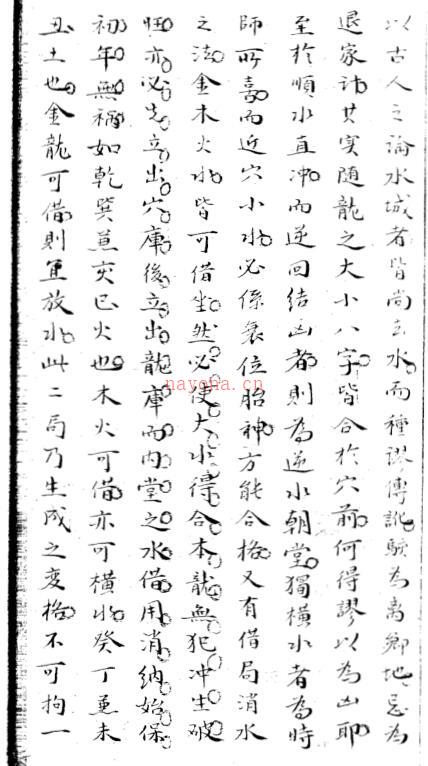 以古人之論水城者皆尚去水而種謬傳訛駭為离鄉地忌為
退家訣其实随龍之大小八字皆合於穴前何得謬以為凶耶
至於順水直冲而逆回結凶者則為逆水朝堂獨橫水者為時
師所喜而近穴小水必係衰位胎神方能合格又有借局消水
之法金木火水皆可借坐然必使大水得合本龍無犯冲生破
旺亦必先立出穴庫後立出龍庫而内堂之水借用消納始保
初年無禍如乾巽兼亥巳火也木火可借亦可橫水癸丁兼未
丑土也金龍可借則宜放水此二局乃生成之变格不可拘一
nayona.cn